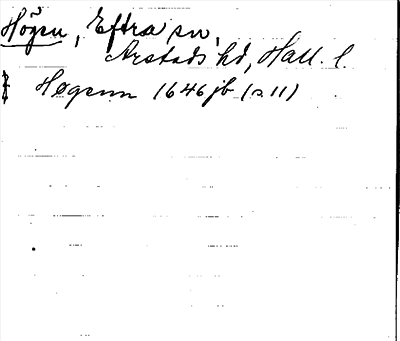 Högen, Eftra sn,
Årstads hd, Hall. l
Høgenn 1646 jb (s. 11)